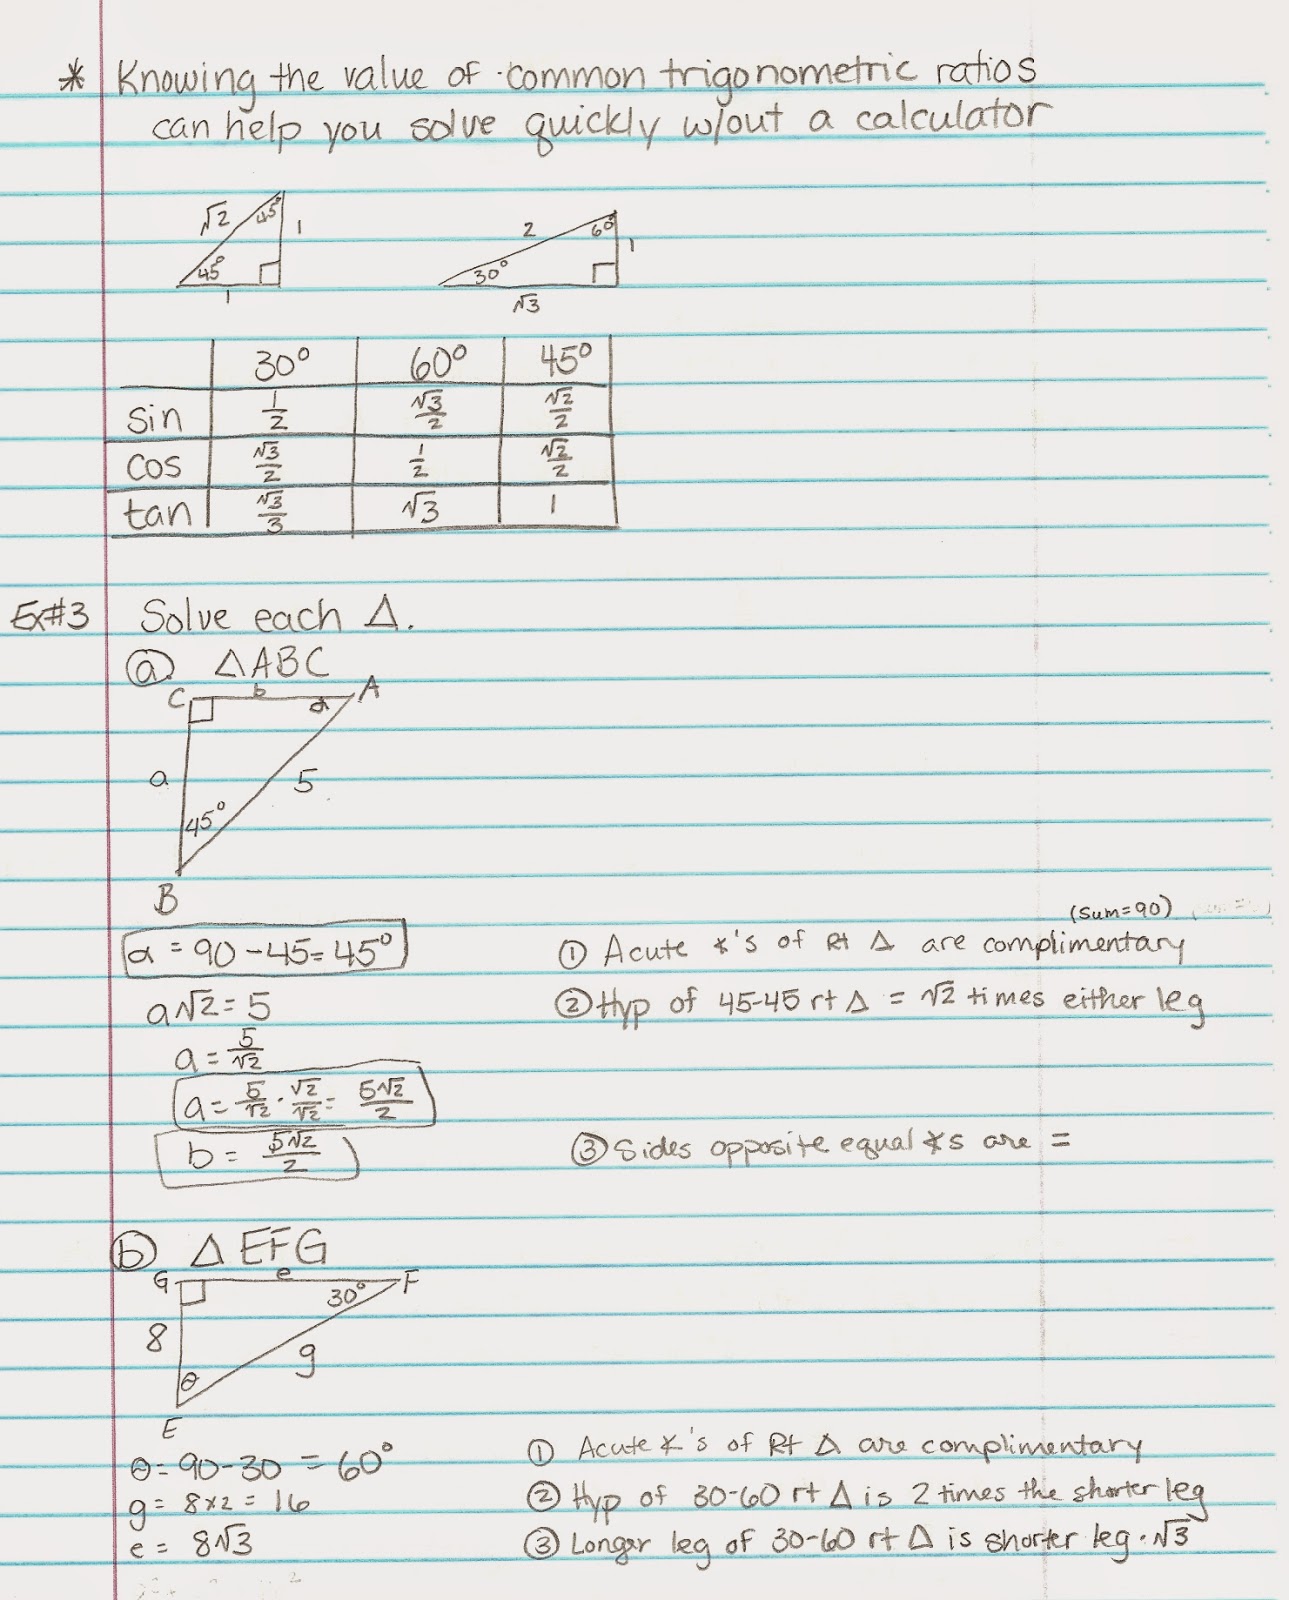 * Knowing the value of common trigonometric ratios
can help you solve quickly w/out a calculator
√2 45° 1
45°
1
2 60° 1
30°
√3
30° 60° 45°
sin 1/2 √3/2 √2/2
cos √3/2 1/2 √2/2
tan √3/3 √3 1
Ex#3 Solve each Δ.
ⓐ ΔABC
C b α A
a 5
45°
B
(sum=90)
α = 90-45=45° ① Acute ∡'s of Rt Δ are complimentary
a√2=5 ② Hyp of 45-45 rt Δ = √2 times either leg
a = 5/√2
a = 5/√2 · √2/√2 = 5√2/2
b = 5√2/2 ③ Sides opposite equal ∡s are =
ⓑ Δ EFG
G e F
30°
8 g
θ
E
θ = 90-30 = 60° ① Acute ∡'s of Rt Δ are complimentary
g = 8x2 = 16 ② Hyp of 30-60 rt Δ is 2 times the shorter leg
e = 8√3 ③ Longer leg of 30-60 rt Δ is shorter leg · √3